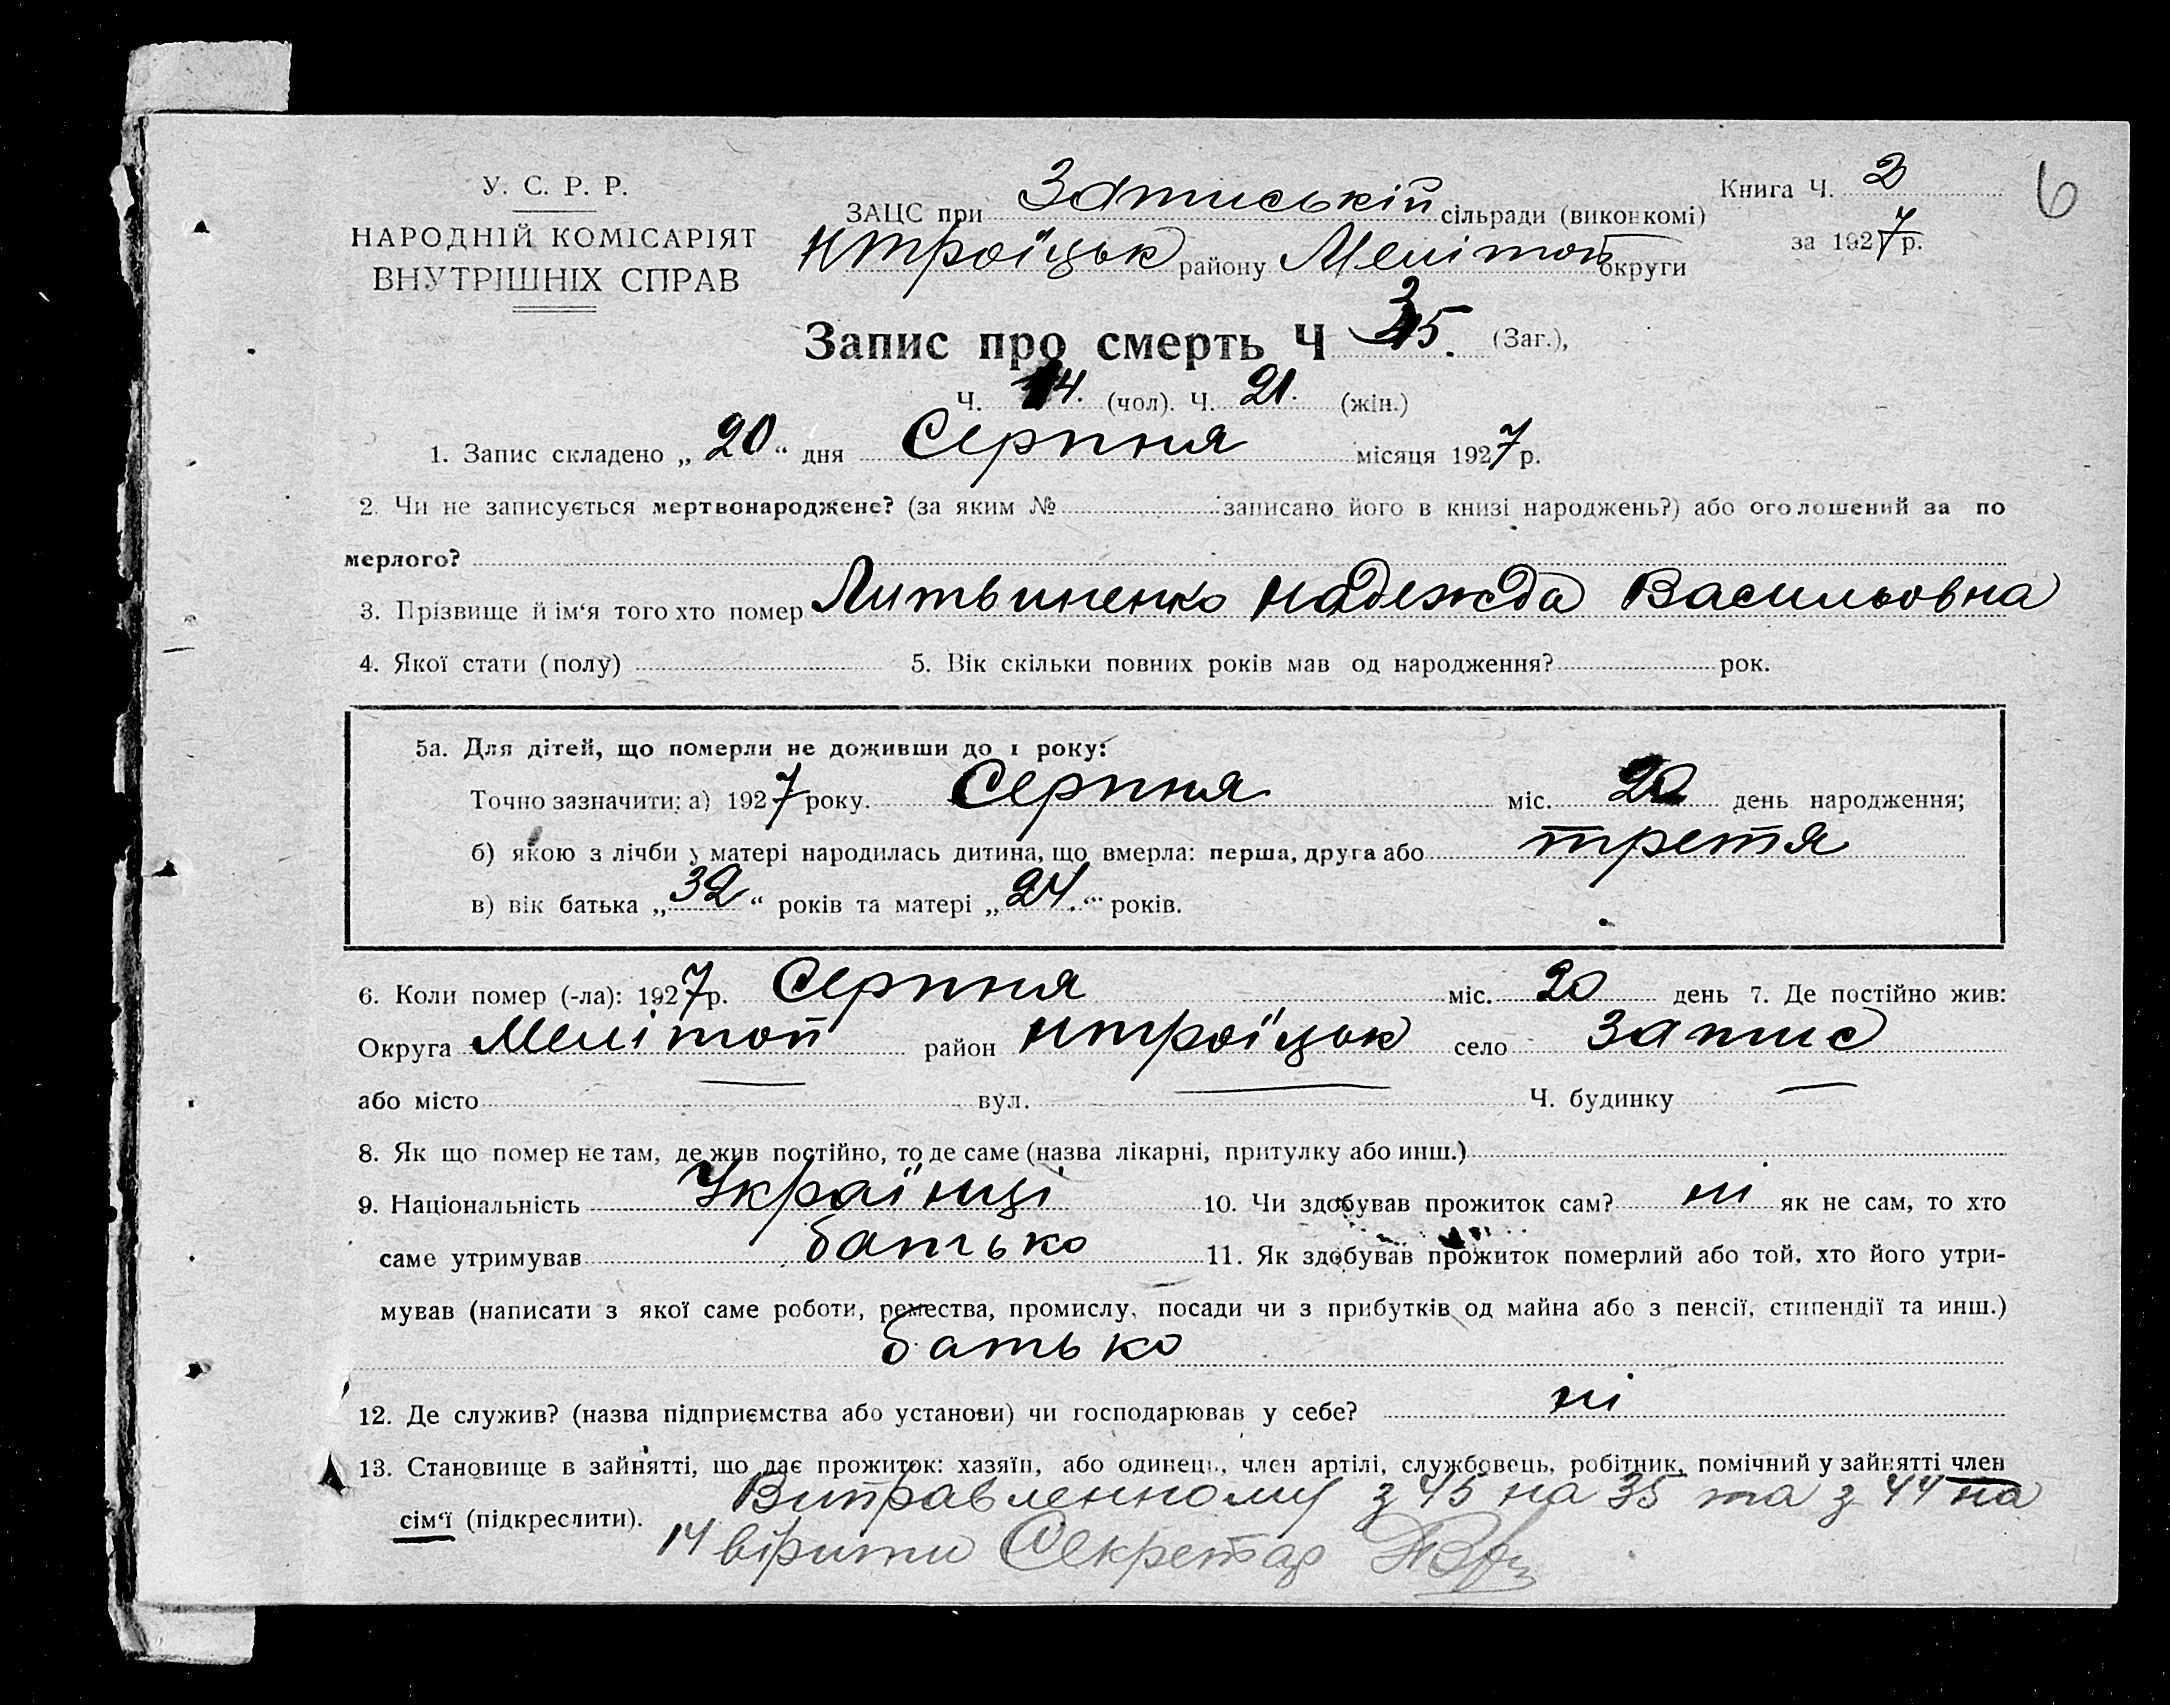 У. С. Р. Р.
НАРОДНІЙ КОМІСАРІЯТ
ВНУТРІШНІХ СПРАВ
ЗАЦС при Запиській сільради (виконкомі)
Нтроїцьк району Мелітоп округи
Книга Ч. 2
за 1927 р.
6
Запис про смерть Ч 35. (Заг.),
Ч. 14. (чол). Ч. 21. (жін.)
1. Запис складено „20“ дня Серпня місяця 1927 р.
2. Чи не записується мертвонароджене? (за яким № записано його в книзі народжень?) або оголошений за по
мерлого?
3. Прізвище й ім‘я того хто помер Литвиненко Надежда Васильовна
4. Якої стати (полу) 5. Вік скільки повних років мав од народження? рок.
5а. Для дітей, що померли не доживши до 1 року:
Точно зазначити: а) 1927 року. Серпня міс. 20 день народження;
б) якою з лічби у матері народилась дитина, що вмерла: перша, друга або третя
в) вік батька „32“ років та матері „24.“ років.
6. Коли помер (-ла): 1927 р. Серпня міс. 20 день 7. Де постійно жив:
Округа Мелітоп район Нтроїцьк село Запис
або місто — вул. — Ч. будинку —
8. Як що помер не там, де жив постійно, то де саме (назва лікарні, притулку або инш.)
9. Національність Українці 10. Чи здобував прожиток сам? ні як не сам, то хто
саме утримував батько 11. Як здобував прожиток померлий або той, хто його утри-
мував (написати з якої саме роботи, ремества, промислу, посади чи з прибутків од майна або з пенсії, стипендії та инш.)
батько
12. Де служив? (назва підприємства або установи) чи господарював у себе? ні
13. Становище в зайнятті, що дає прожиток: хазяїн, або одинець, член артілі, службовець, робітник, помічний у зайнятті член
сім‘ї (підкреслити). Виправленному з 45 на 35 та з 44 на
14 вірити Секретар